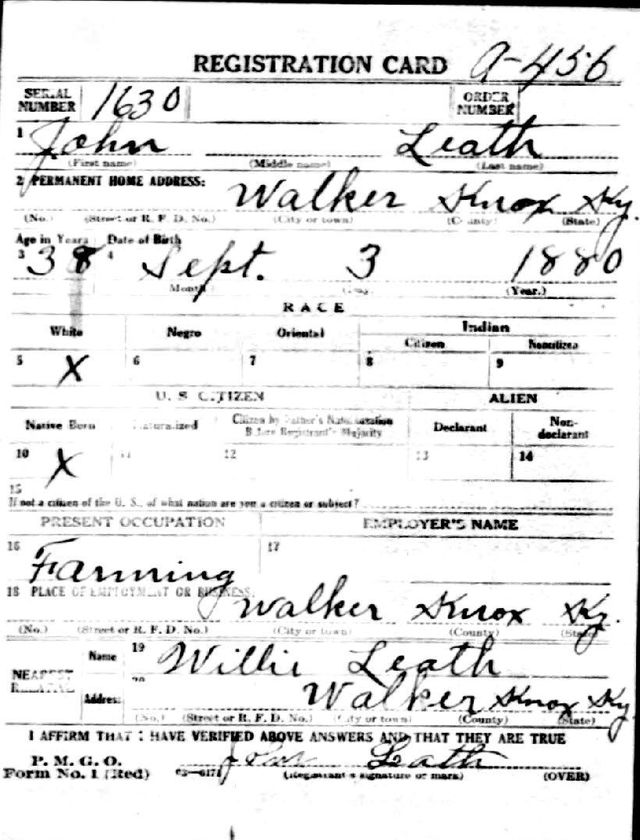 REGISTRATION CARD A-456
SERIAL NUMBER 1630 ORDER NUMBER
1 John Leath
(First name) (Middle name) (Last name)
2 PERMANENT HOME ADDRESS: Walker Knox Ky.
(No.) (Street or R. F. D. No.) (City or town) (County) (State)
Age in Years Date of Birth
3 38 4 Sept. 3 1880
Month Day (Year.)
RACE
White Negro Oriental Indian
Citizen Noncitizen
5 X 6 7 8 9
U. S. CITIZEN ALIEN
Native Born Naturalized Citizen by Father's Naturalization Before Registrant's Majority Declarant Non-declarant
10 X 11 12 13 14
15
If not a citizen of the U. S., of what nation are you a citizen or subject?
PRESENT OCCUPATION EMPLOYER'S NAME
16 Farming 17
18 PLACE OF EMPLOYMENT OR BUSINESS:
Walker Knox Ky.
(No.) (Street or R. F. D. No.) (City or town) (County) (State)
NEAREST RELATIVE Name 19 Willie Leath
Address 20 Walker Knox Ky
(No.) (Street or R. F. D. No.) (City or town) (County) (State)
I AFFIRM THAT I HAVE VERIFIED ABOVE ANSWERS AND THAT THEY ARE TRUE
P. M. G. O.
Form No. 1 (Red) 03-6171 John Leath
(Registrant's signature or mark) (OVER)